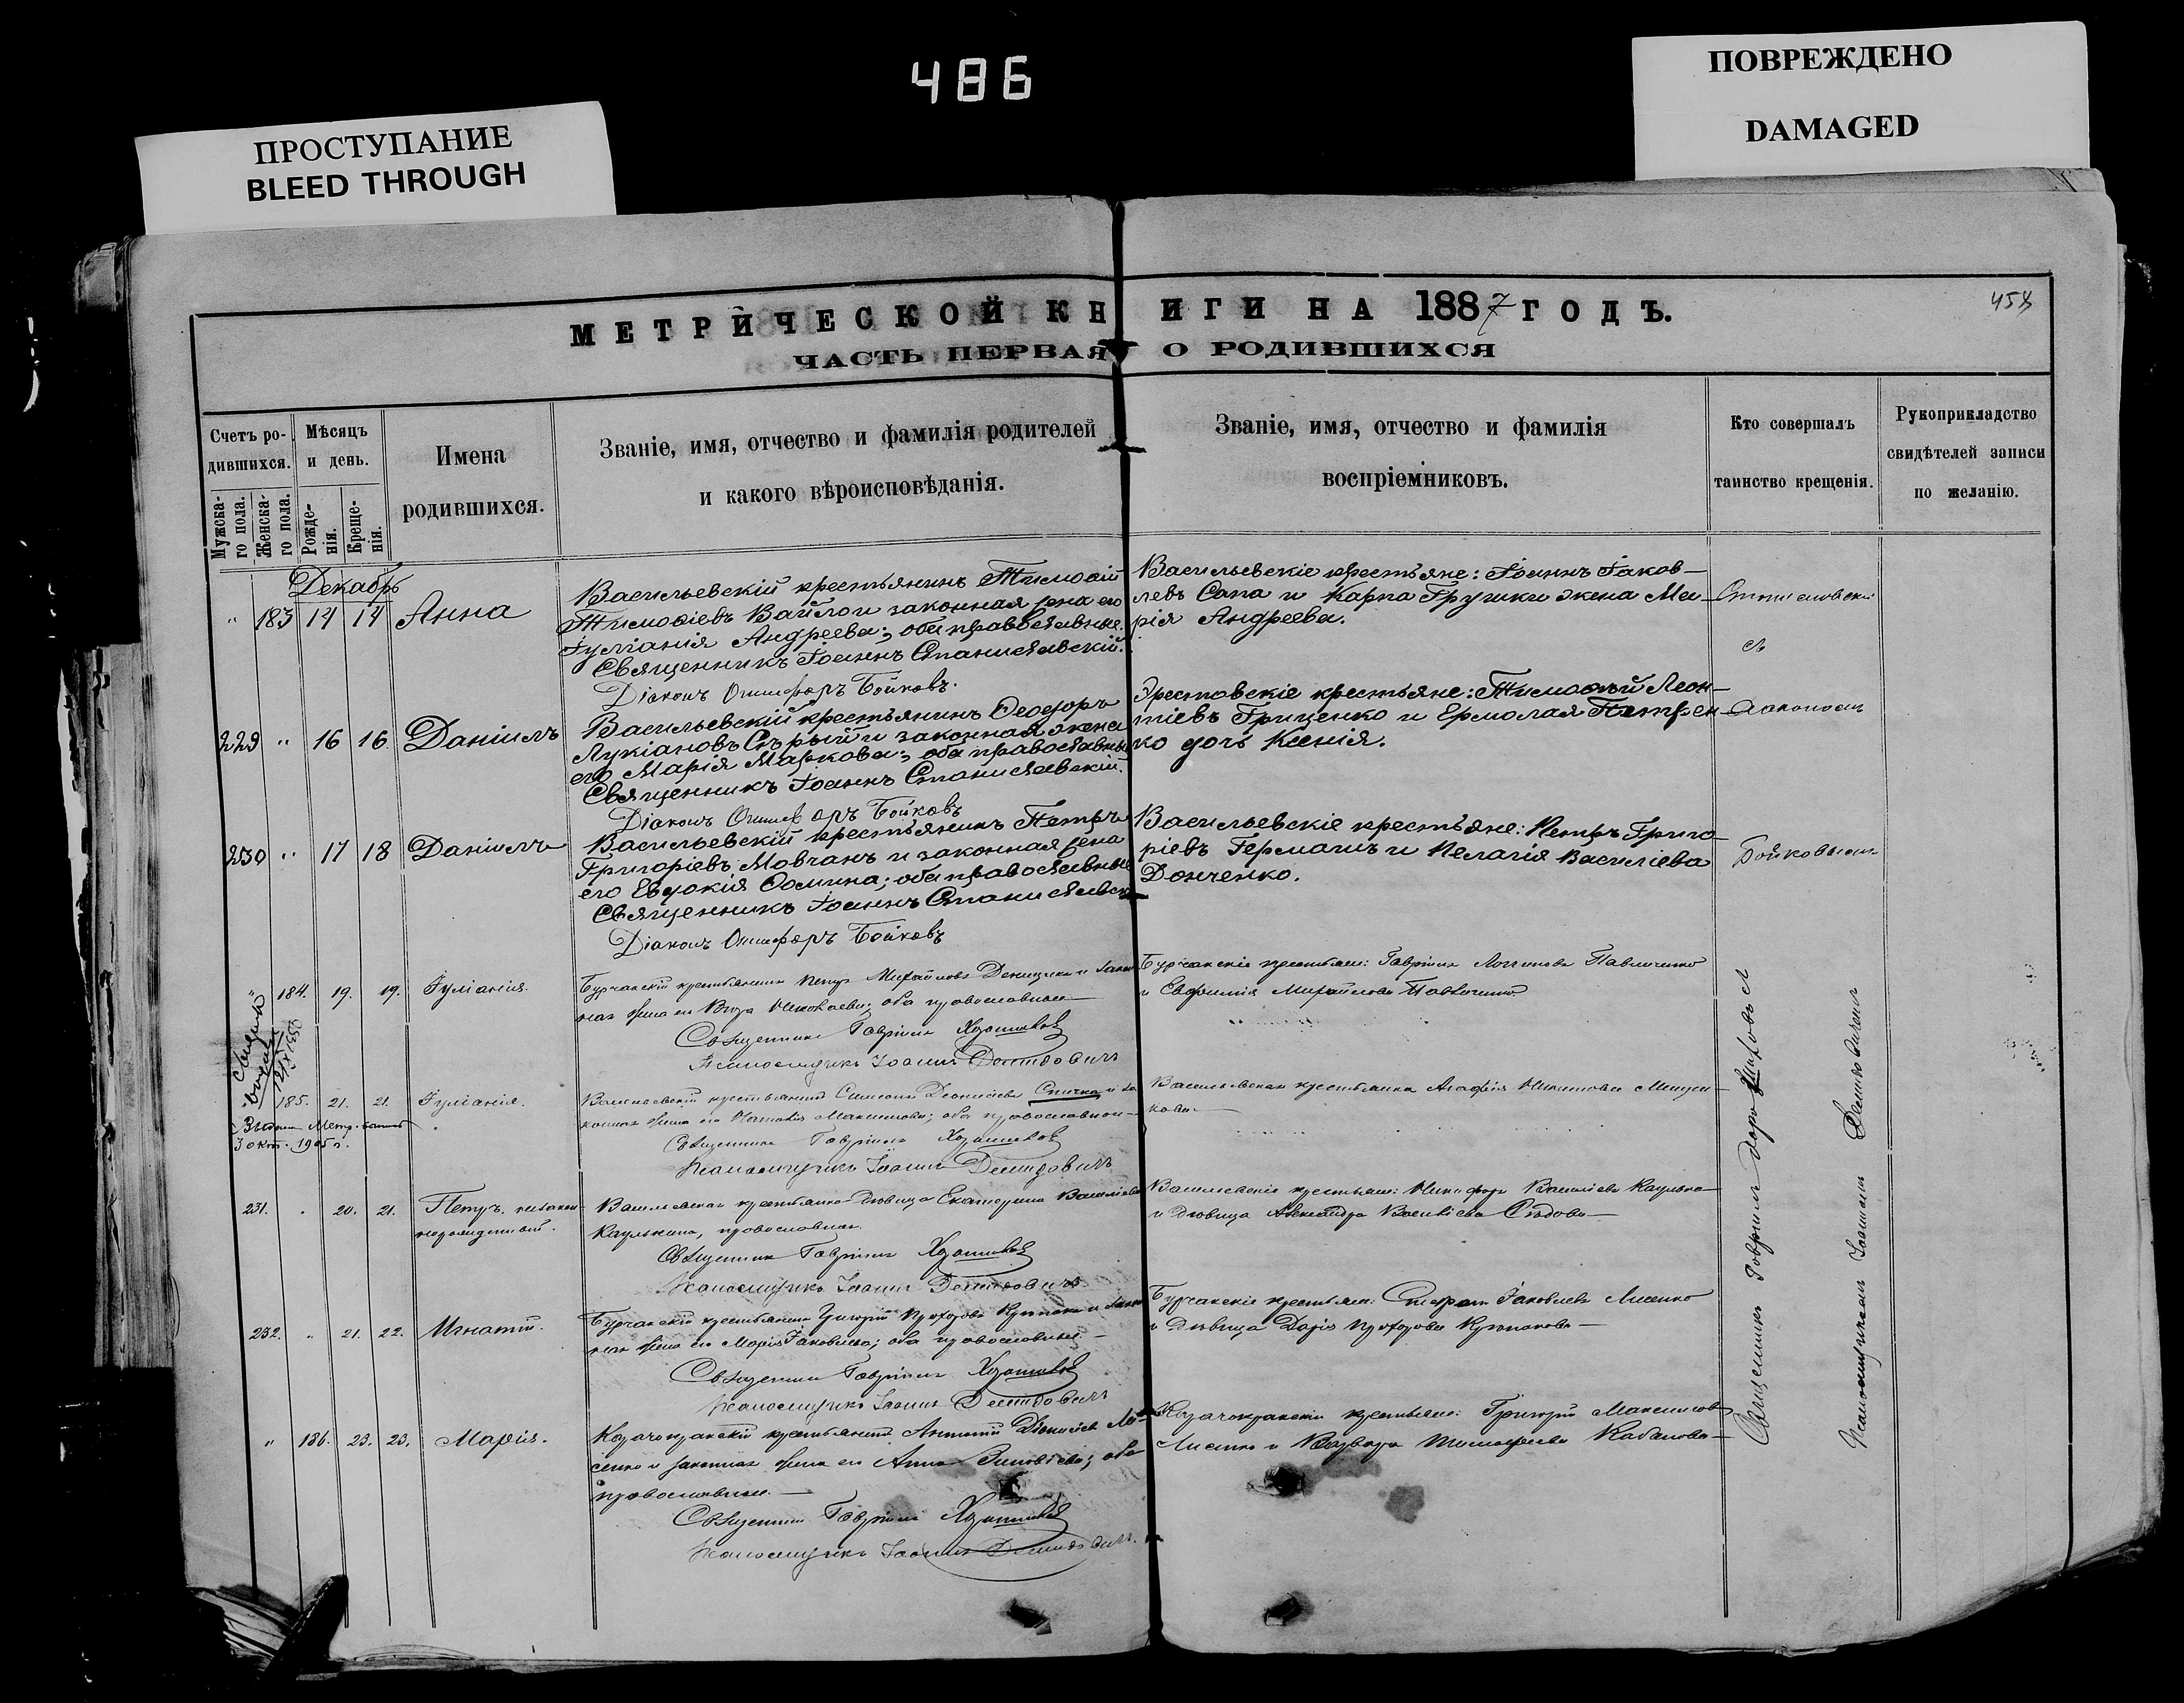 486
ПРОСТУПАНИЕ
BLEED THROUGH
ПОВРЕЖДЕНО
DAMAGED
МЕТРИЧЕСКОЙ КНИГИ НА 1887 ГОДЪ.
ЧАСТЬ ПЕРВАЯ О РОДИВШИХСЯ
Счетъ ро-
дившихся.
Мужска-
го пола.
Женска-
го пола.
Мѣсяцъ
и день.
Рожде-
нія.
Креще-
нія.
Имена
родившихся.
Званіе, имя, отчество и фамилія родителей
и какого вѣроисповѣданія.
Званіе, имя, отчество и фамилія
воспріемниковъ.
Кто совершалъ
таинство крещенія.
Рукоприкладство
свидѣтелей записи
по желанію.
Декабрь
" 183 14 14 Анна
Васильевскій крестьянинъ Тимоѳій
Тимоѳіевъ Вайло и законная жена его
Іуліанія Андреева; оба православные.
Священникъ Іоаннъ Станиславскій.
Діаконъ Онисифоръ Бойковъ.
Васильевскіе крестьяне: Іоаннъ Іаков-
левъ Сапа и Карпа Грушки жена Ма-
рія Андреева.
съ
229 " 16 16 Даніилъ
Васильевскій крестьянинъ Ѳеодоръ
Лукіановъ Сѣрый и законная жена
его Марія Маркова; оба православны
Священникъ Іоаннъ Станиславскій.
Діаконъ Бойковъ
крестьяне: Тимоѳей Леон-
тіевъ Гриценко и Ермолая Петрен-
ко дочь Ксенія.
230 " 17 18 Даніилъ
Васильевскій крестьянинъ Петръ
Григоріевъ Мовчанъ и законная жена
его Евдокія Ѳомина; оба православные
Священникъ Іоаннъ Станиславск
Діаконъ Онисифоръ Бойковъ
Васильевскіе крестьяне: Петръ Григо-
ріевъ Германъ и Пелагія Василіева
Донченко.
Бойковымъ
" 184. 19. 19. Іуліанія.
Бурчакскій крестьянинъ Петръ Михайловъ и закон
ная жена его Николаева; оба православные
Священникъ Гавріилъ
Псаломщикъ Іоаннъ Демидовичъ
Бурчакскіе крестьяне: Гавріилъ Павличенко
и Евфимія Михайлова Павличенко
" 185. 21. 21. Іуліанія.
Васильевскій крестьянинъ Симеонъ Діонисіевъ Спичка и за
конная жена его Наталія Максимова; оба православные
Священникъ Гавріилъ
Псаломщикъ Іоаннъ Демидовичъ
Васильевская крестьянка Агафія Никитова
3 окт. 1905 г.
231. . 20. 21. Петръ, незакон
норожденный.
Васильевская крестьянка дѣвица Екатерина Василіева
православная.
Священникъ Гавріилъ
Псаломщикъ Іоаннъ Демидовичъ
Васильевскіе крестьяне: Никифоръ Василіевъ
и дѣвица Александра Василіева Сѣдова
232. " 21. 22. Игнатій.
Бурчакскій крестьянинъ Григорій Прохоровъ и закон
ная жена его Марія Іаковлева; оба православные
Священникъ Гавріилъ
Псаломщикъ Іоаннъ Демидовичъ
Бурчакскіе крестьяне: Стефанъ Іаковлевъ Лисенко
и дѣвица Дарія Прохорова
" 186. 23. 23. Марія.
крестьянинъ Антоній Діонисіевъ Ли-
сенко и законная жена его Анна Зиновіева; оба
православные.
Священникъ Гавріилъ
Псаломщикъ Іоаннъ Демидовичъ.
крестьяне: Григорій Максимовъ
Лисенко и Варвара Тимоѳеева Кабанова
Священникъ Гавріилъ
Псаломщикомъ Іоанномъ Демидовичемъ